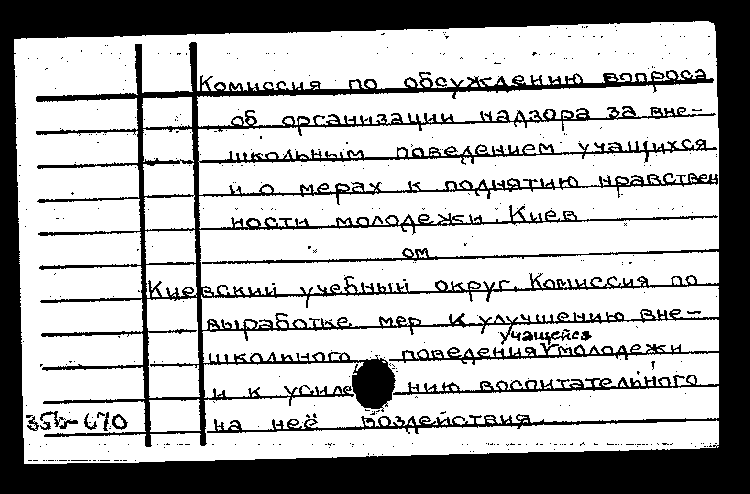 Комиссия по обсуждению вопроса
об организации надзора за вне-
школьным поведением учащихся
и о мерах к поднятию нравствен
ности молодежи. Киев
см.
Киевский учебный округ. Комиссия по
выработке мер к улучшению вне-
учащейся
школьного поведения √ молодежи
и к усилению воспитательного
на неё воздействия
35б-670